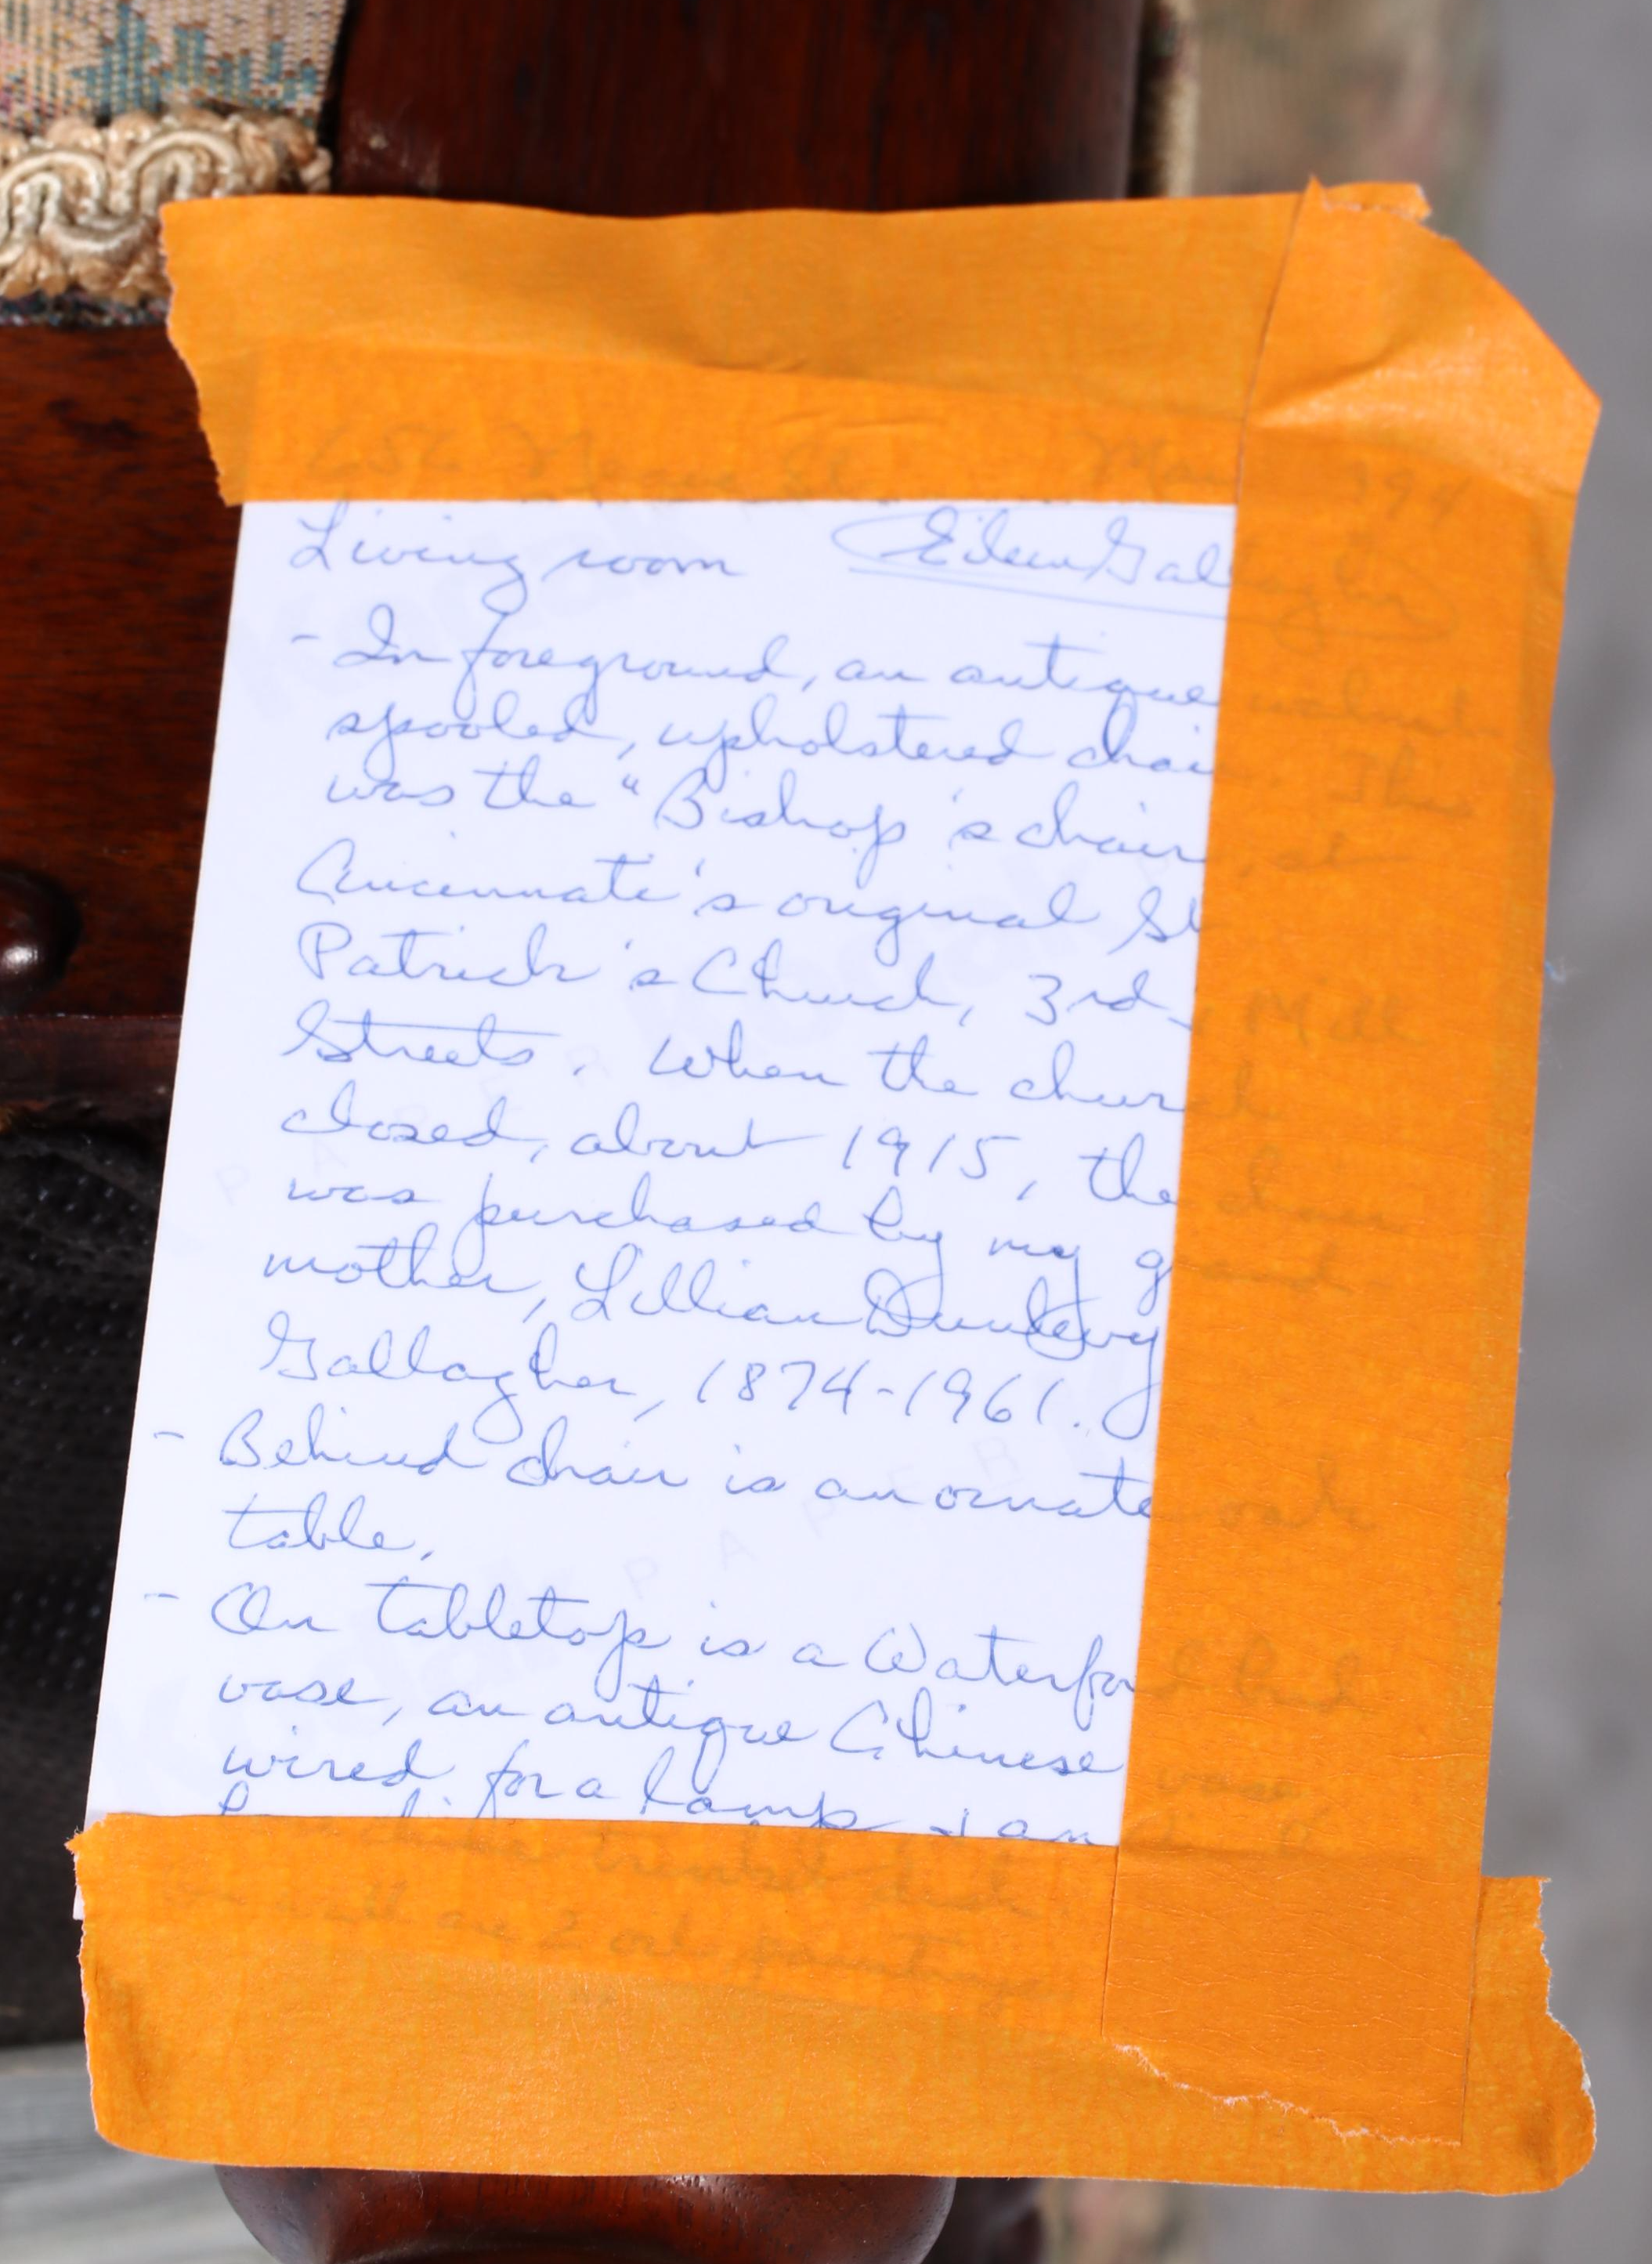 Living room Eileen Gallagher
- In foreground, an antique walnut
spooled, upholstered chair. This
was the "Bishop's chair, at
Cincinnati's original St
Patrick's Church, 3rd, Mill
Streets. When the church
closed, about 1915, the chair
was purchased by my grand-
mother, Lillian Dunlevy
Gallagher, 1874-1961.
- Behind chair is an ornate oak
table.
- On tabletop is a Waterford bud
vase, an antique Chinese vase,
wired for a lamp, & an
trinket dish.
on wall are 2 oil paintings